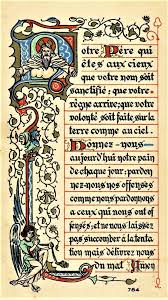 Notre Père qui
êtes aux cieux
que votre nom soit
sanctifié; que votre
règne arrive; que votre
volonté soit faite sur la
terre comme au ciel.
Donnez-nous
aujourd'hui notre pain
de chaque jour; pardon-
nez-nous nos offenses
comme nous pardonnons
a ceux qui nous ont of-
fensés, et ne nous laissez
pas succomber à la tenta-
tion mais délivrez nous
du mal Amen
784